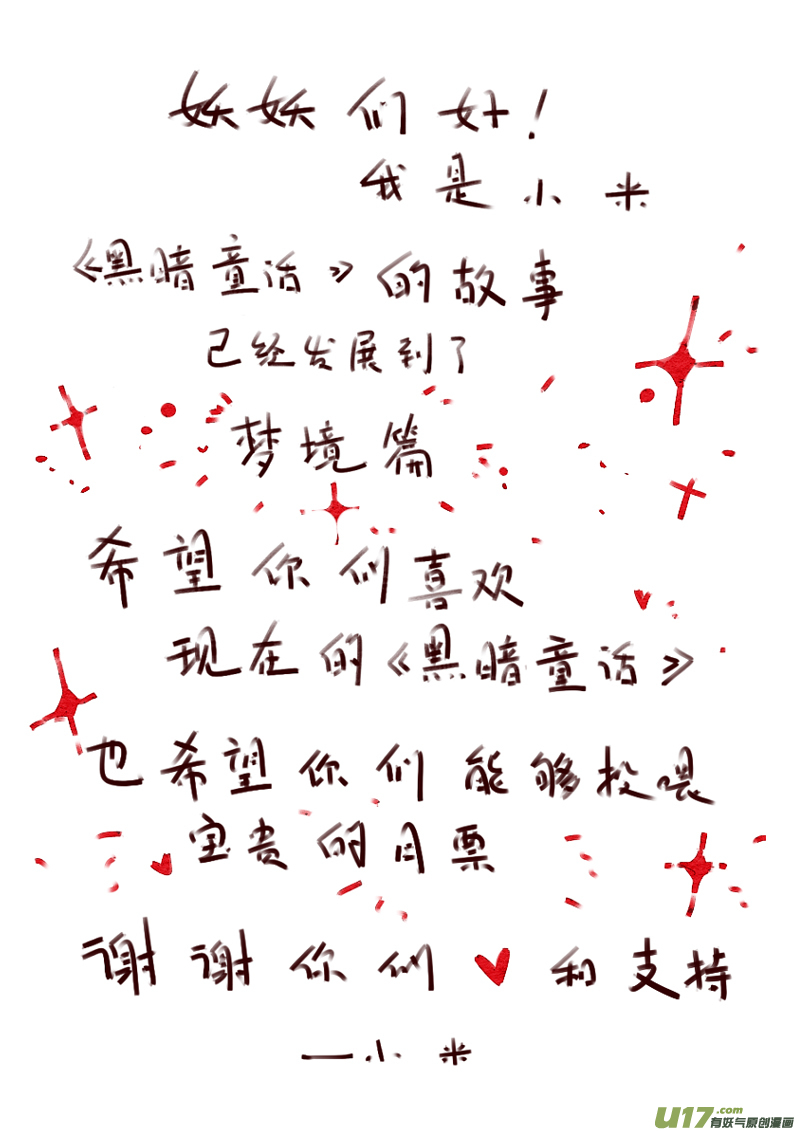 妖妖们好!
我是小米
《黑暗童话》的故事
已经发展到了
梦境篇
希望你们喜欢
现在的《黑暗童话》
也希望你们能够投喂
宝贵的月票
谢谢你们❤和支持
—小米
U17.com
有妖气原创漫画